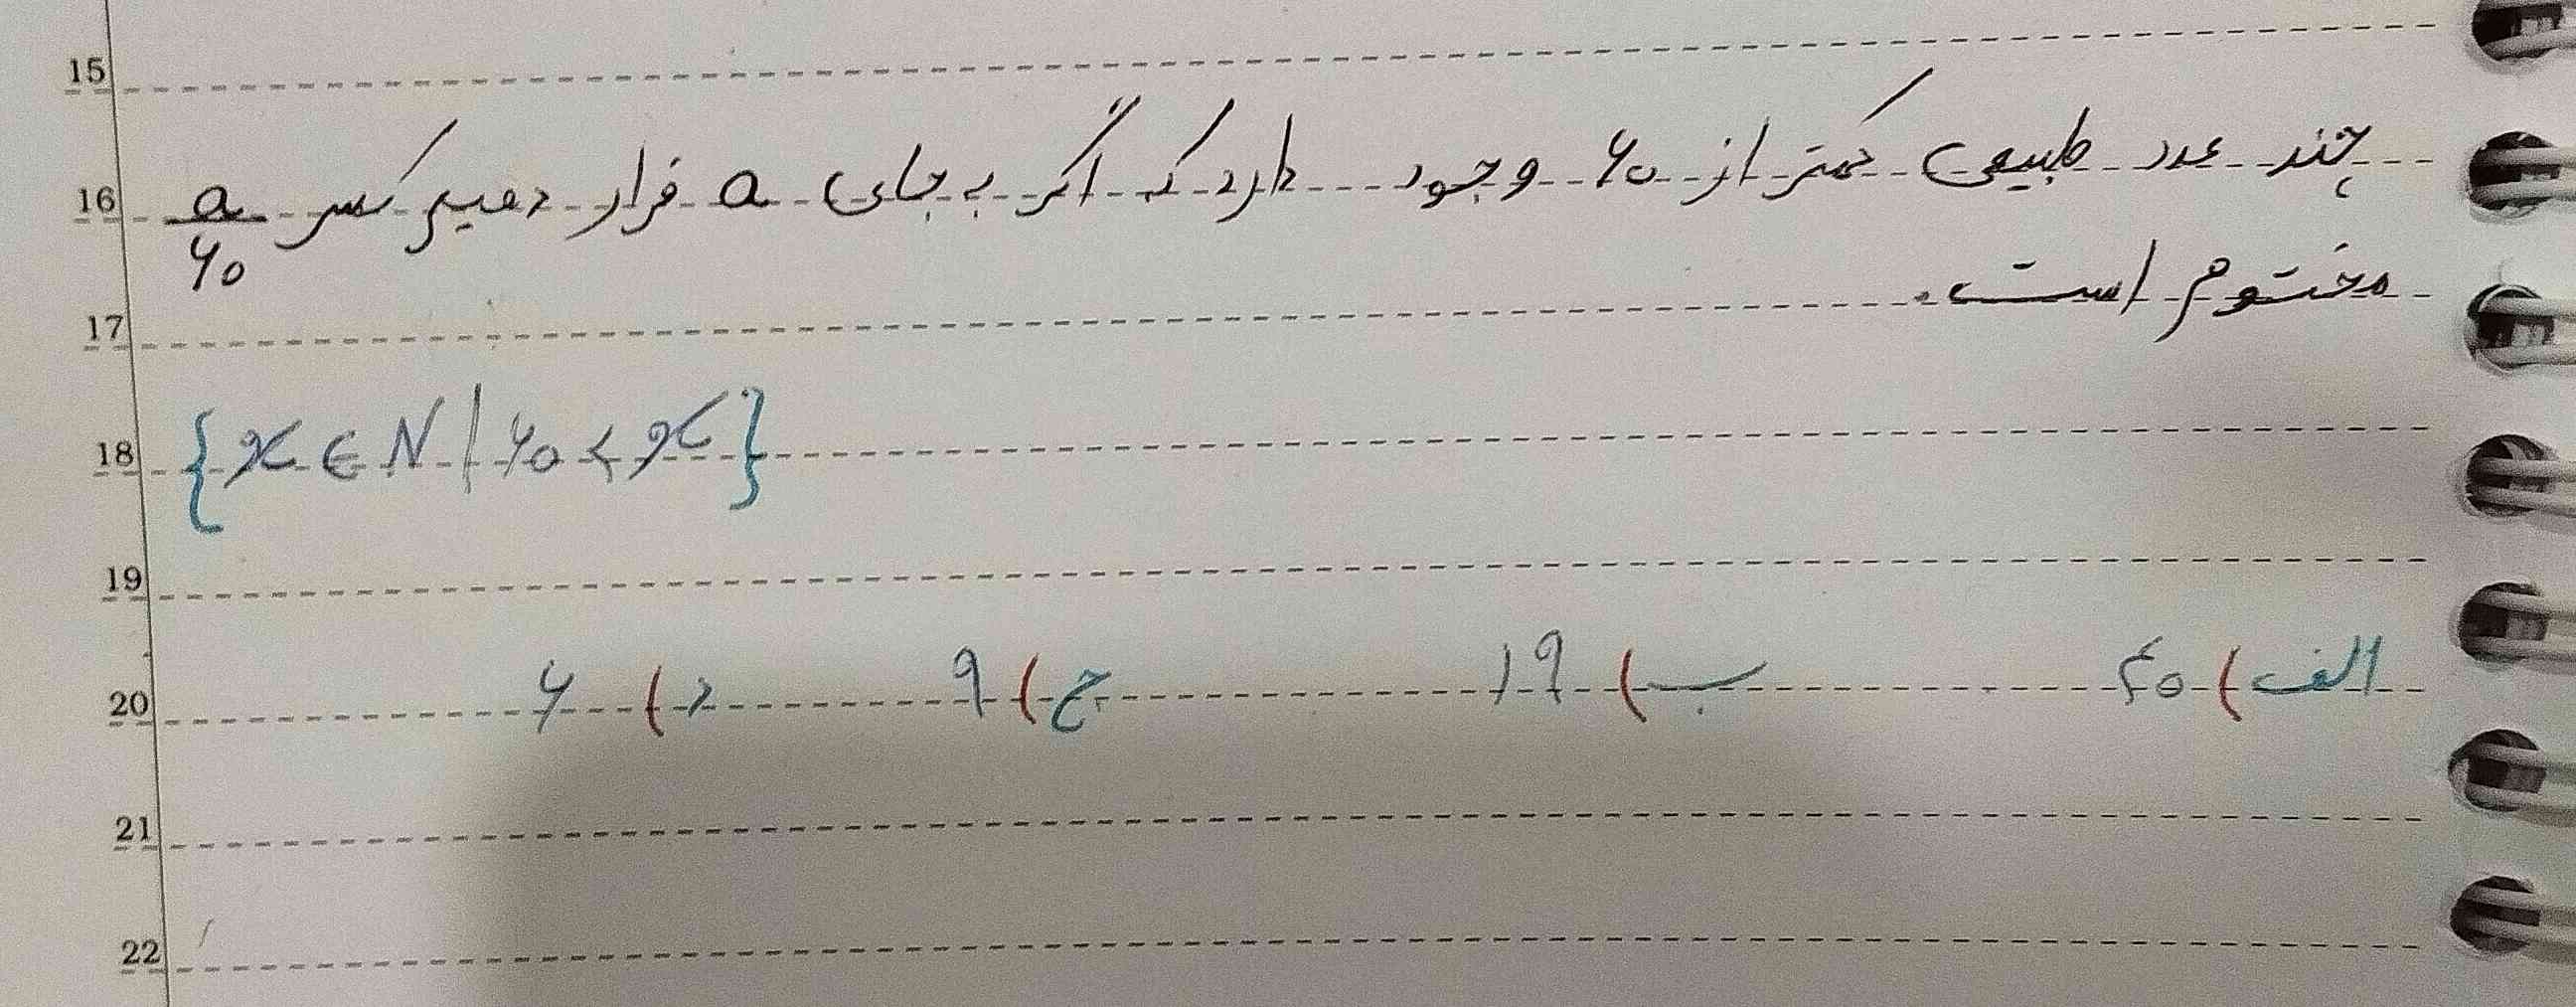 15
16 چند عدد طبیعی کمتر از ۶۰ وجود دارد که اگر به جای a قرار دهیم کسر a/۶۰
مختوم است.
17
18 {x ∈ N | ۶۰ < x}
19
20 الف) ۴۰ ب) ۱۹ ج) ۹ د) ۶
21
22